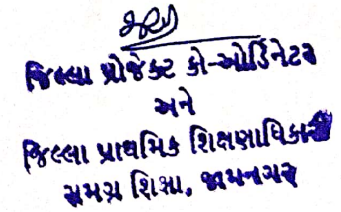 જિલ્લા પ્રોજેક્ટ કો-ઓર્ડિનેટર
અને
જિલ્લા પ્રાથમિક શિક્ષણાધિકારી
સમગ્ર શિક્ષા, જામનગર